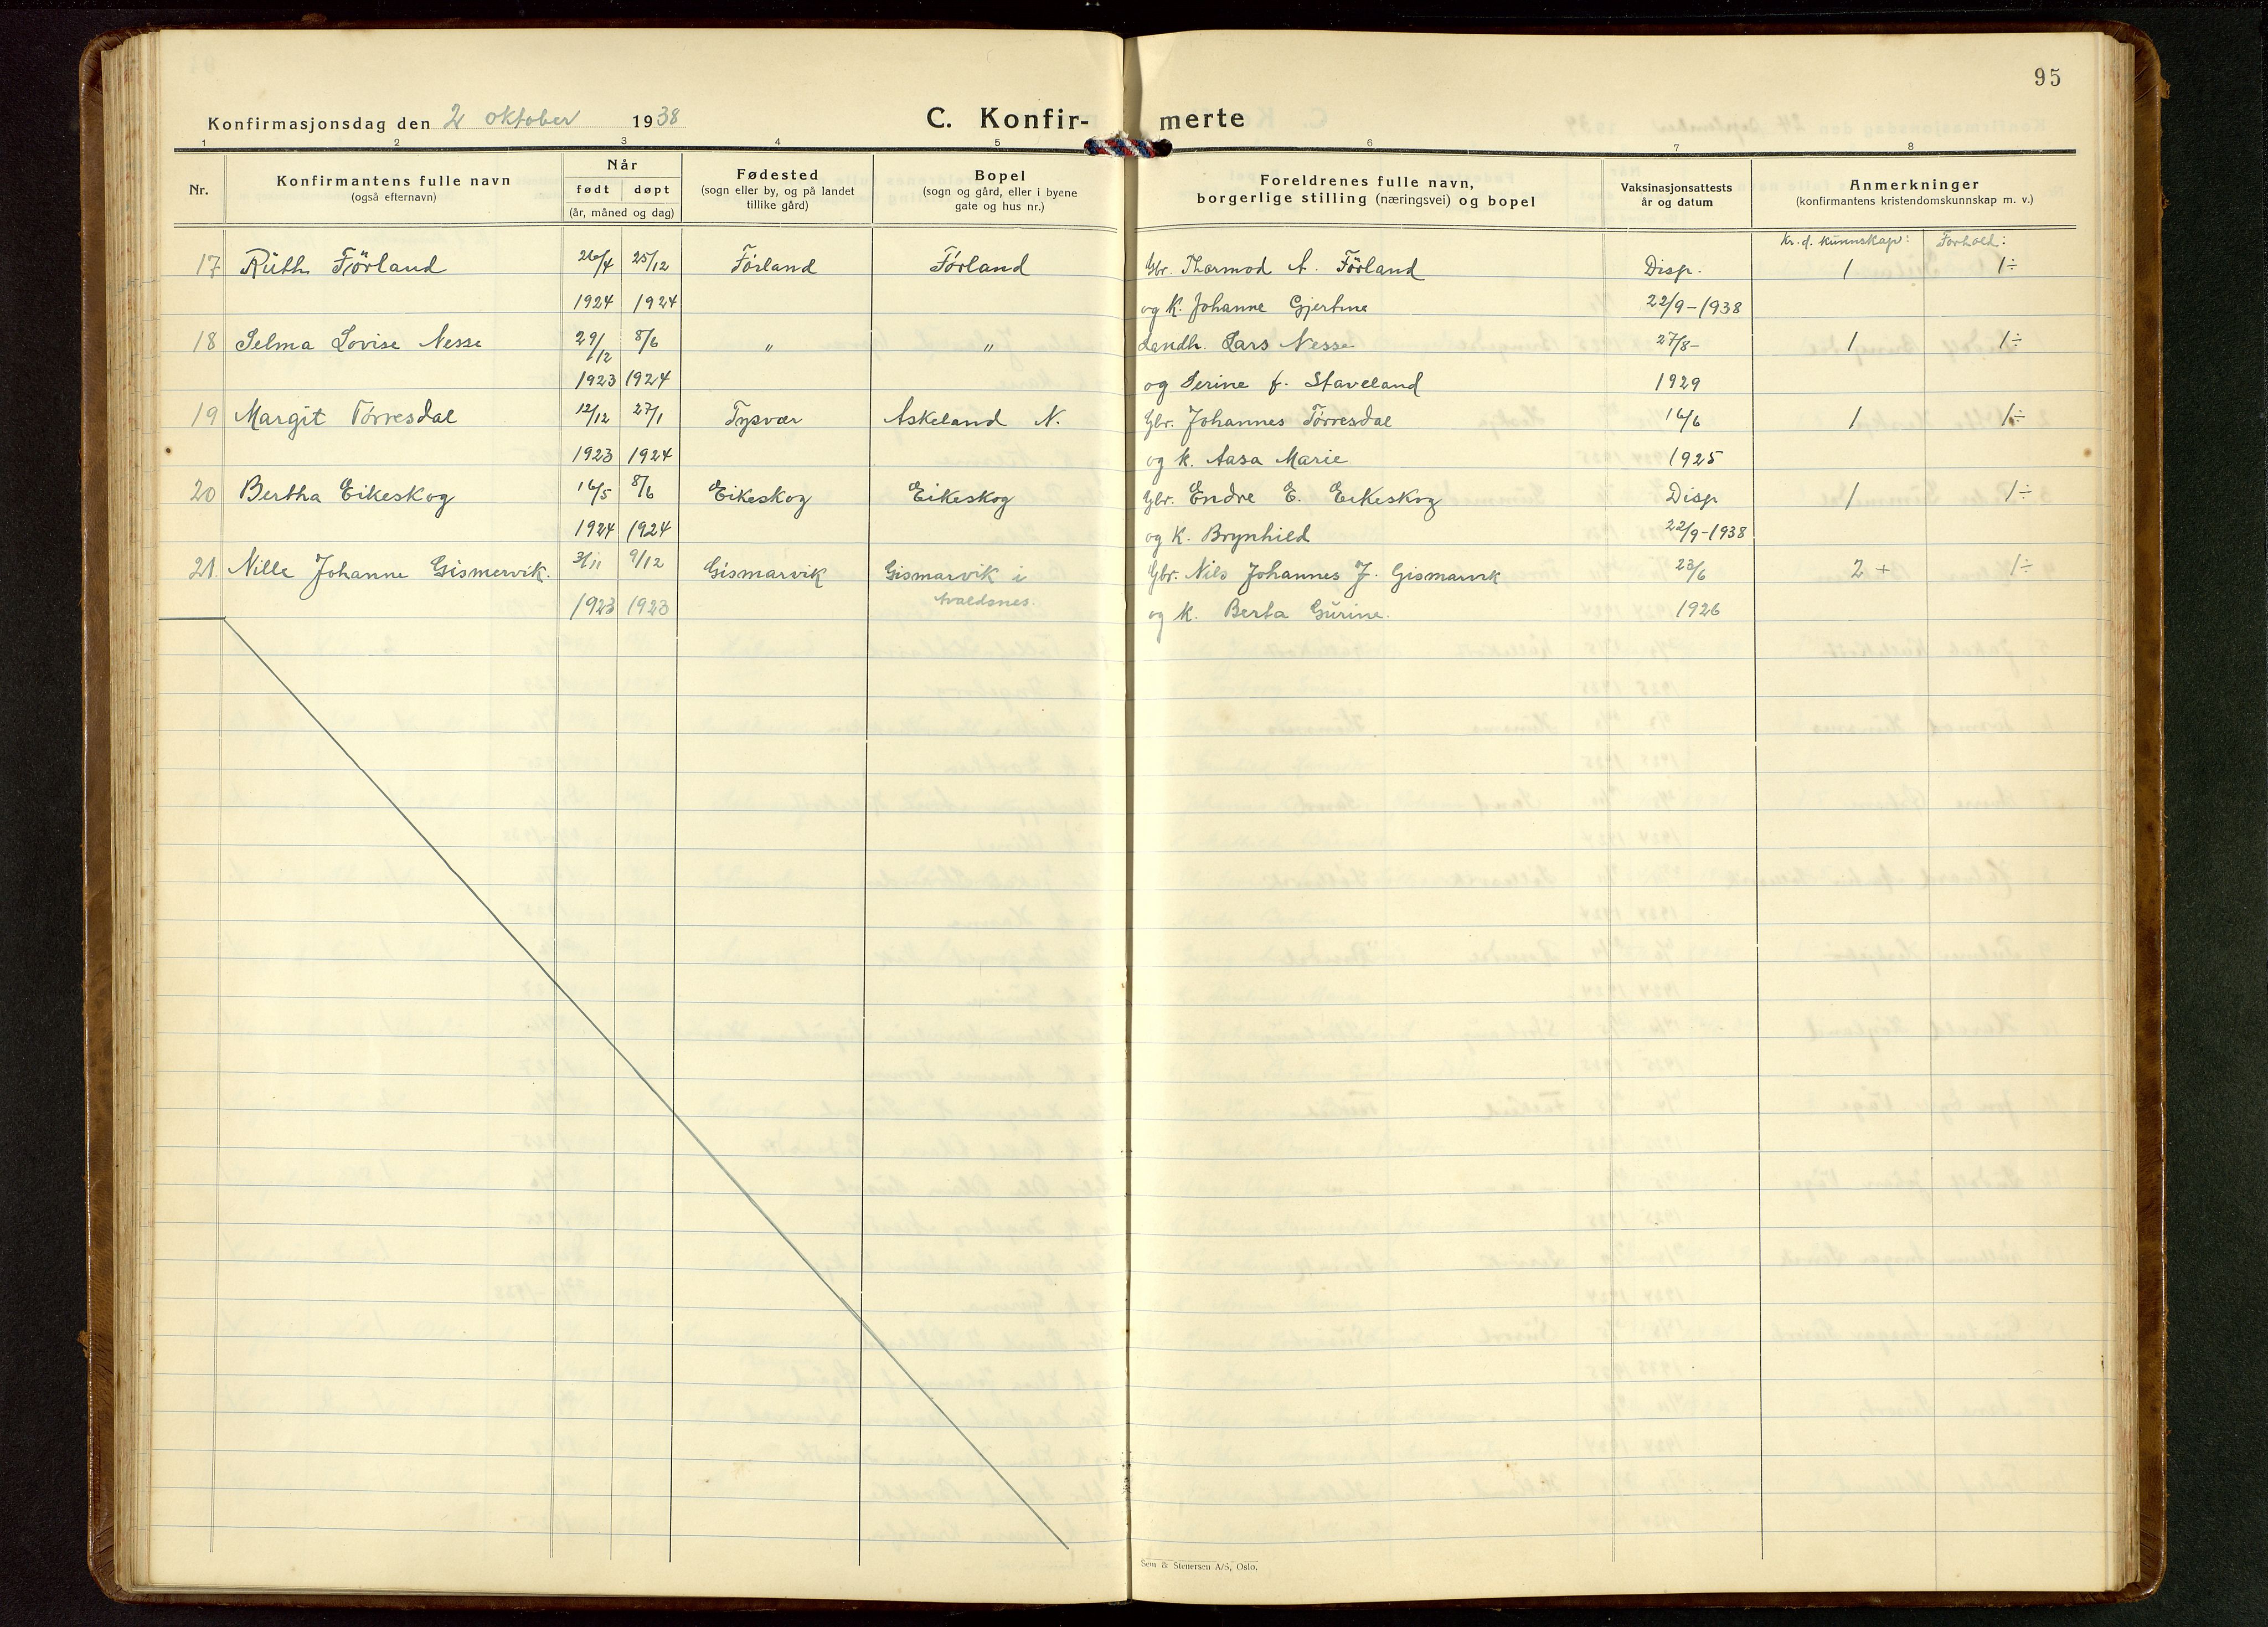 95
Konfirmasjonsdag den 2 oktober 1938 C. Konfir- merte
1 2 3 4 5 6 7 8
Nr. Konfirmantens fulle navn (også efternavn) Når født døpt (år, måned og dag) Fødested (sogn eller by, og på landet tillike gård) Bopel (sogn og gård, eller i byene gate og hus nr.) Foreldrenes fulle navn, borgerlige stilling (næringsvei) og bopel Vaksinasjonsattests år og datum Anmerkninger (konfirmantens kristendomskunnskap m. v.)
Kr. d. kunnskap: Forhold:
17 Ruth Förland 26/4 25/12 Förland Förland Gbr. Thormod A. Förland Disp. 1 1÷
1924 1924 og k. Johanne Gjertine 22/9-1938
18 Selma Lovise Nesse 29/12 8/6 " " Landh. Lars Nesse 27/8- 1 1÷
1923 1924 og Serine f. Staveland 1929
19 Margit Törresdal 12/12 27/1 Tysvær Askeland N. Gbr. Johannes Törresdal 16/6 1 1÷
1923 1924 og k. Aasa Marie 1925
20 Bertha Eikeskog 16/5 8/6 Eikeskog Eikeskog Gbr. Endre E. Eikeskog Disp 1 1÷
1924 1924 og k. Brynhild 22/9-1938
21. Nille Johanne Gismervik. 3/11 9/12 Gismarvik Gismarvik i Gbr. Nils Johannes J. Gismarvik 23/6 2+ 1÷
1923 1923 Avaldsnes. og k. Berta Gurine. 1926
Sem & Stenersen A/S, Oslo.